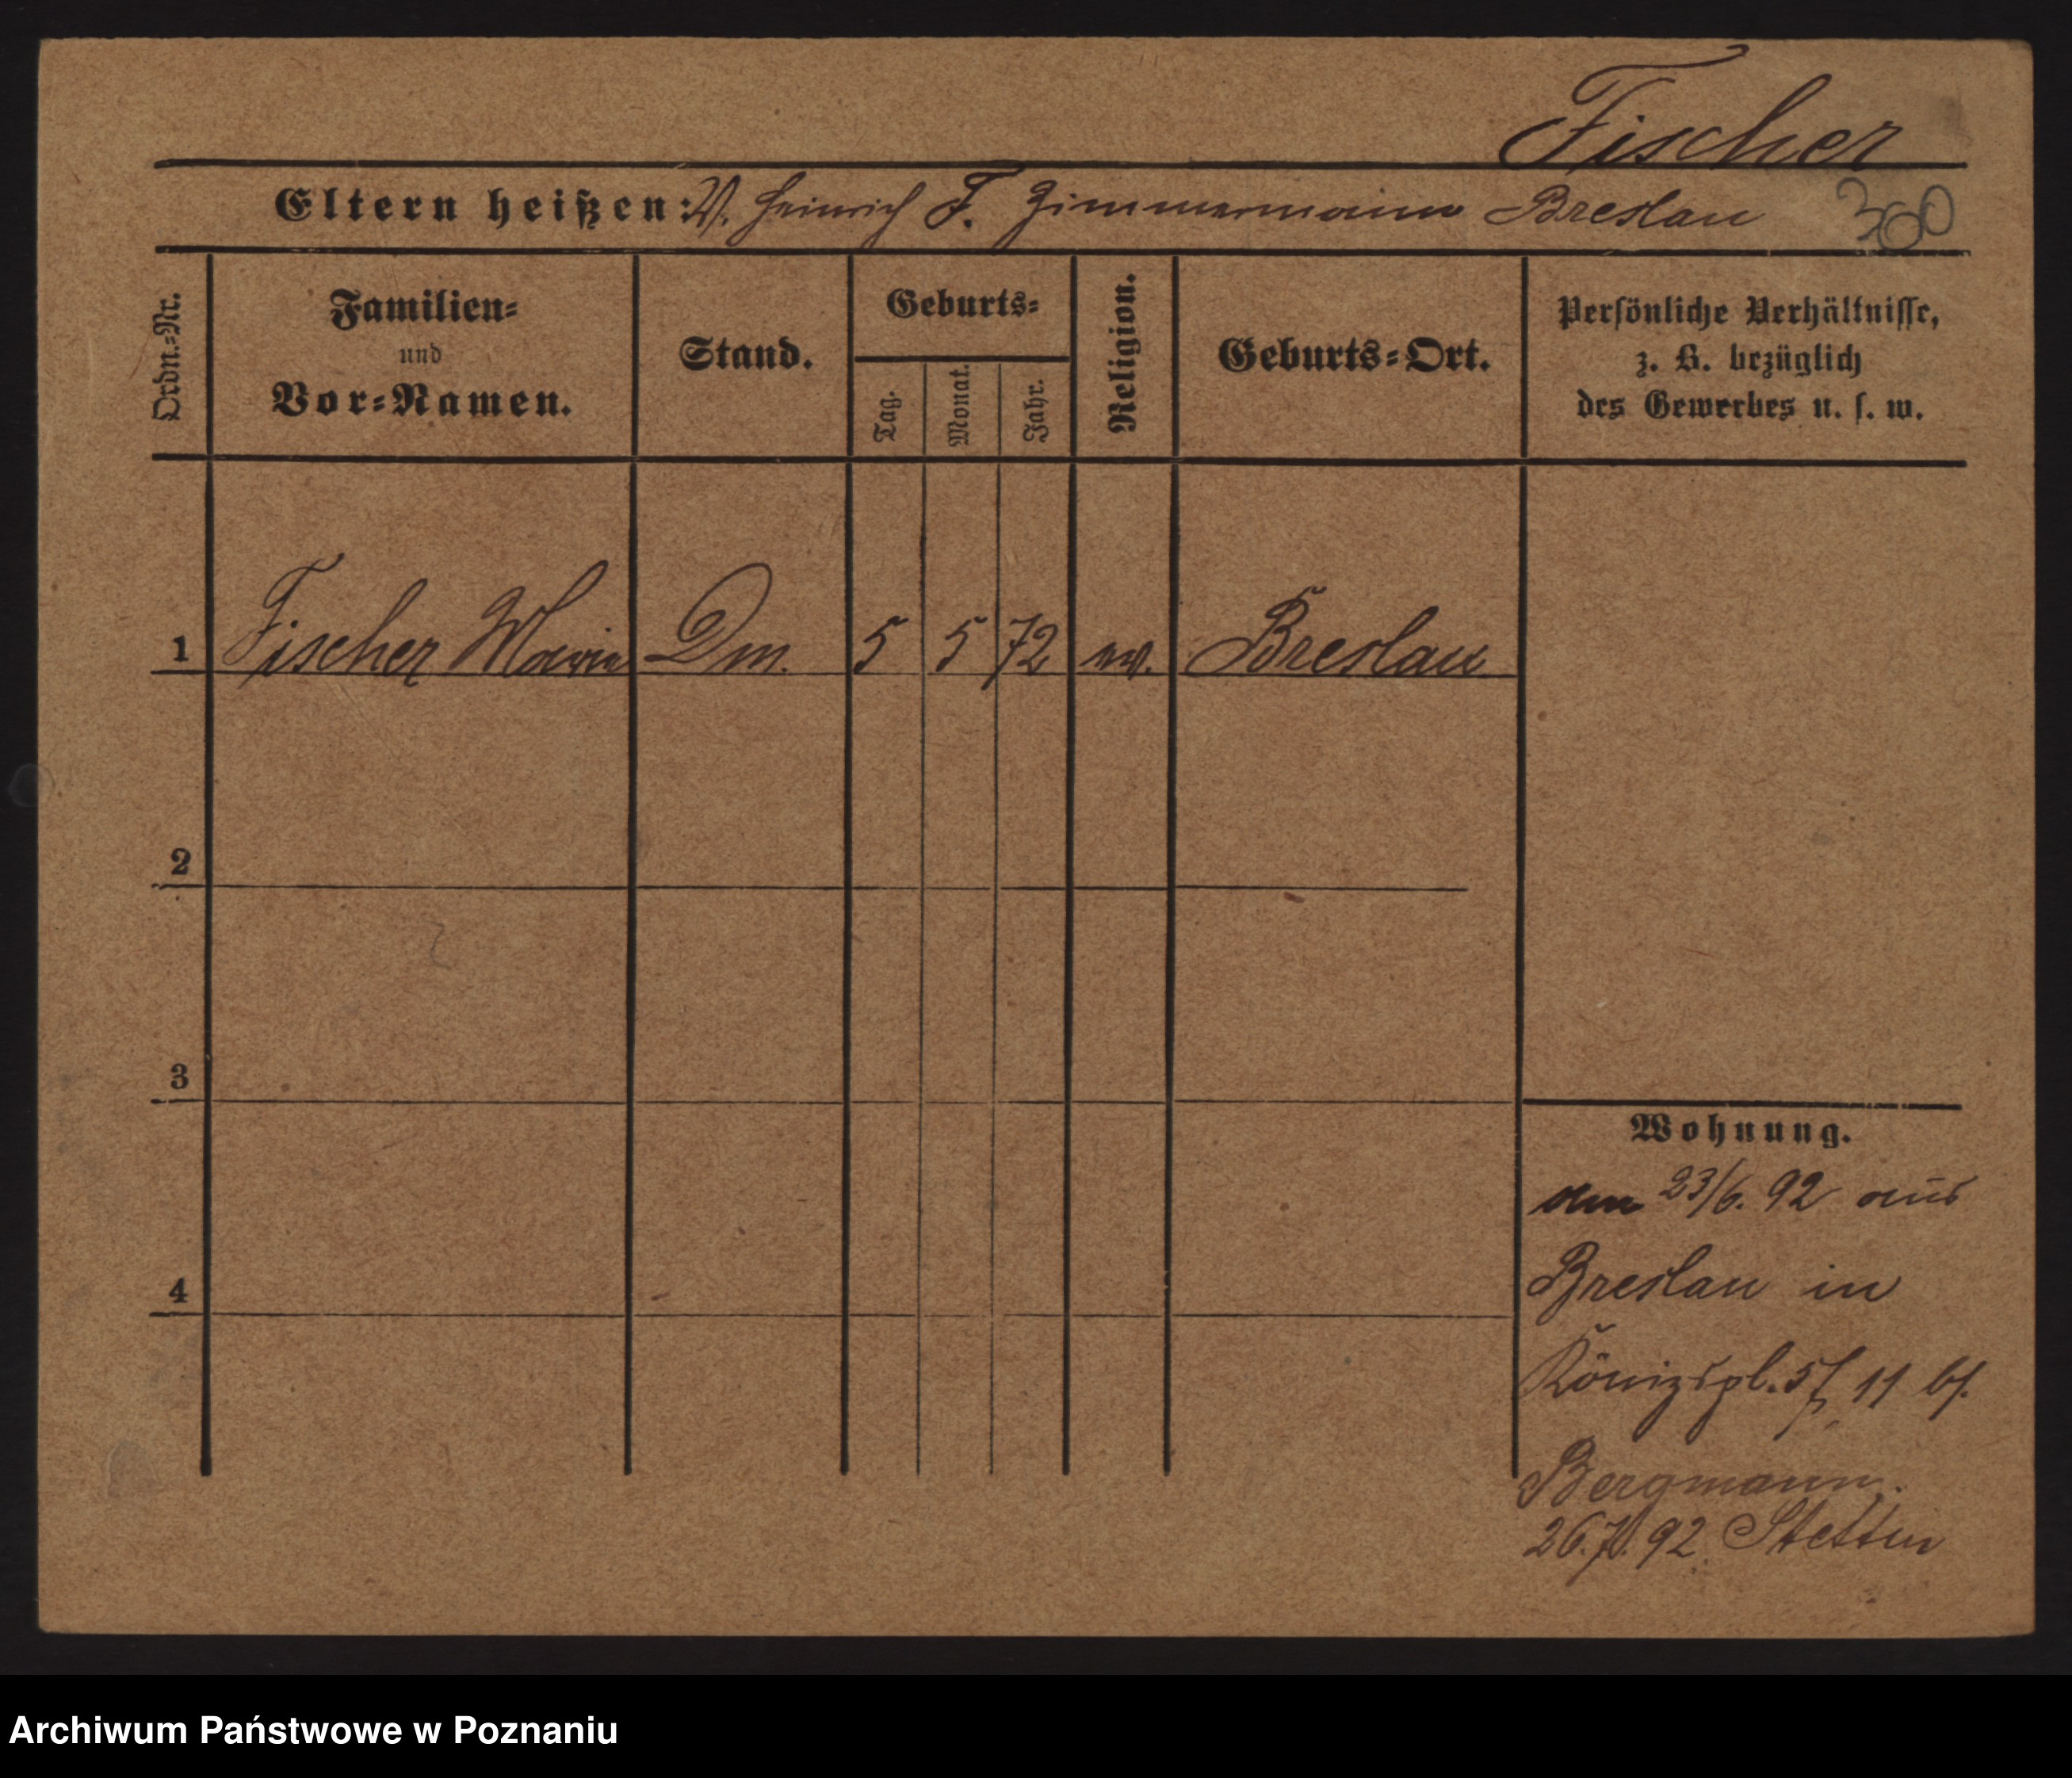 Fischer
Eltern heißen: V. Heinrich F. Zimmermann Breslau 360
Ordn.-Nr.
Familien-
und
Vor-Namen.
Stand.
Geburts-
Tag.
Monat.
Jahr.
Religion.
Geburts-Ort.
Persönliche Verhältnisse,
z. B. bezüglich
des Gewerbes u. s. w.
1 Fischer Maria Dm. 5 5 72 ev. Breslau
2
3
4
Wohnung.
den 23/6. 92 aus
Breslau in
Königspl. 5 11 bf.
Bergmann.
26.7. 92. Stettin
Archiwum Państwowe w Poznaniu